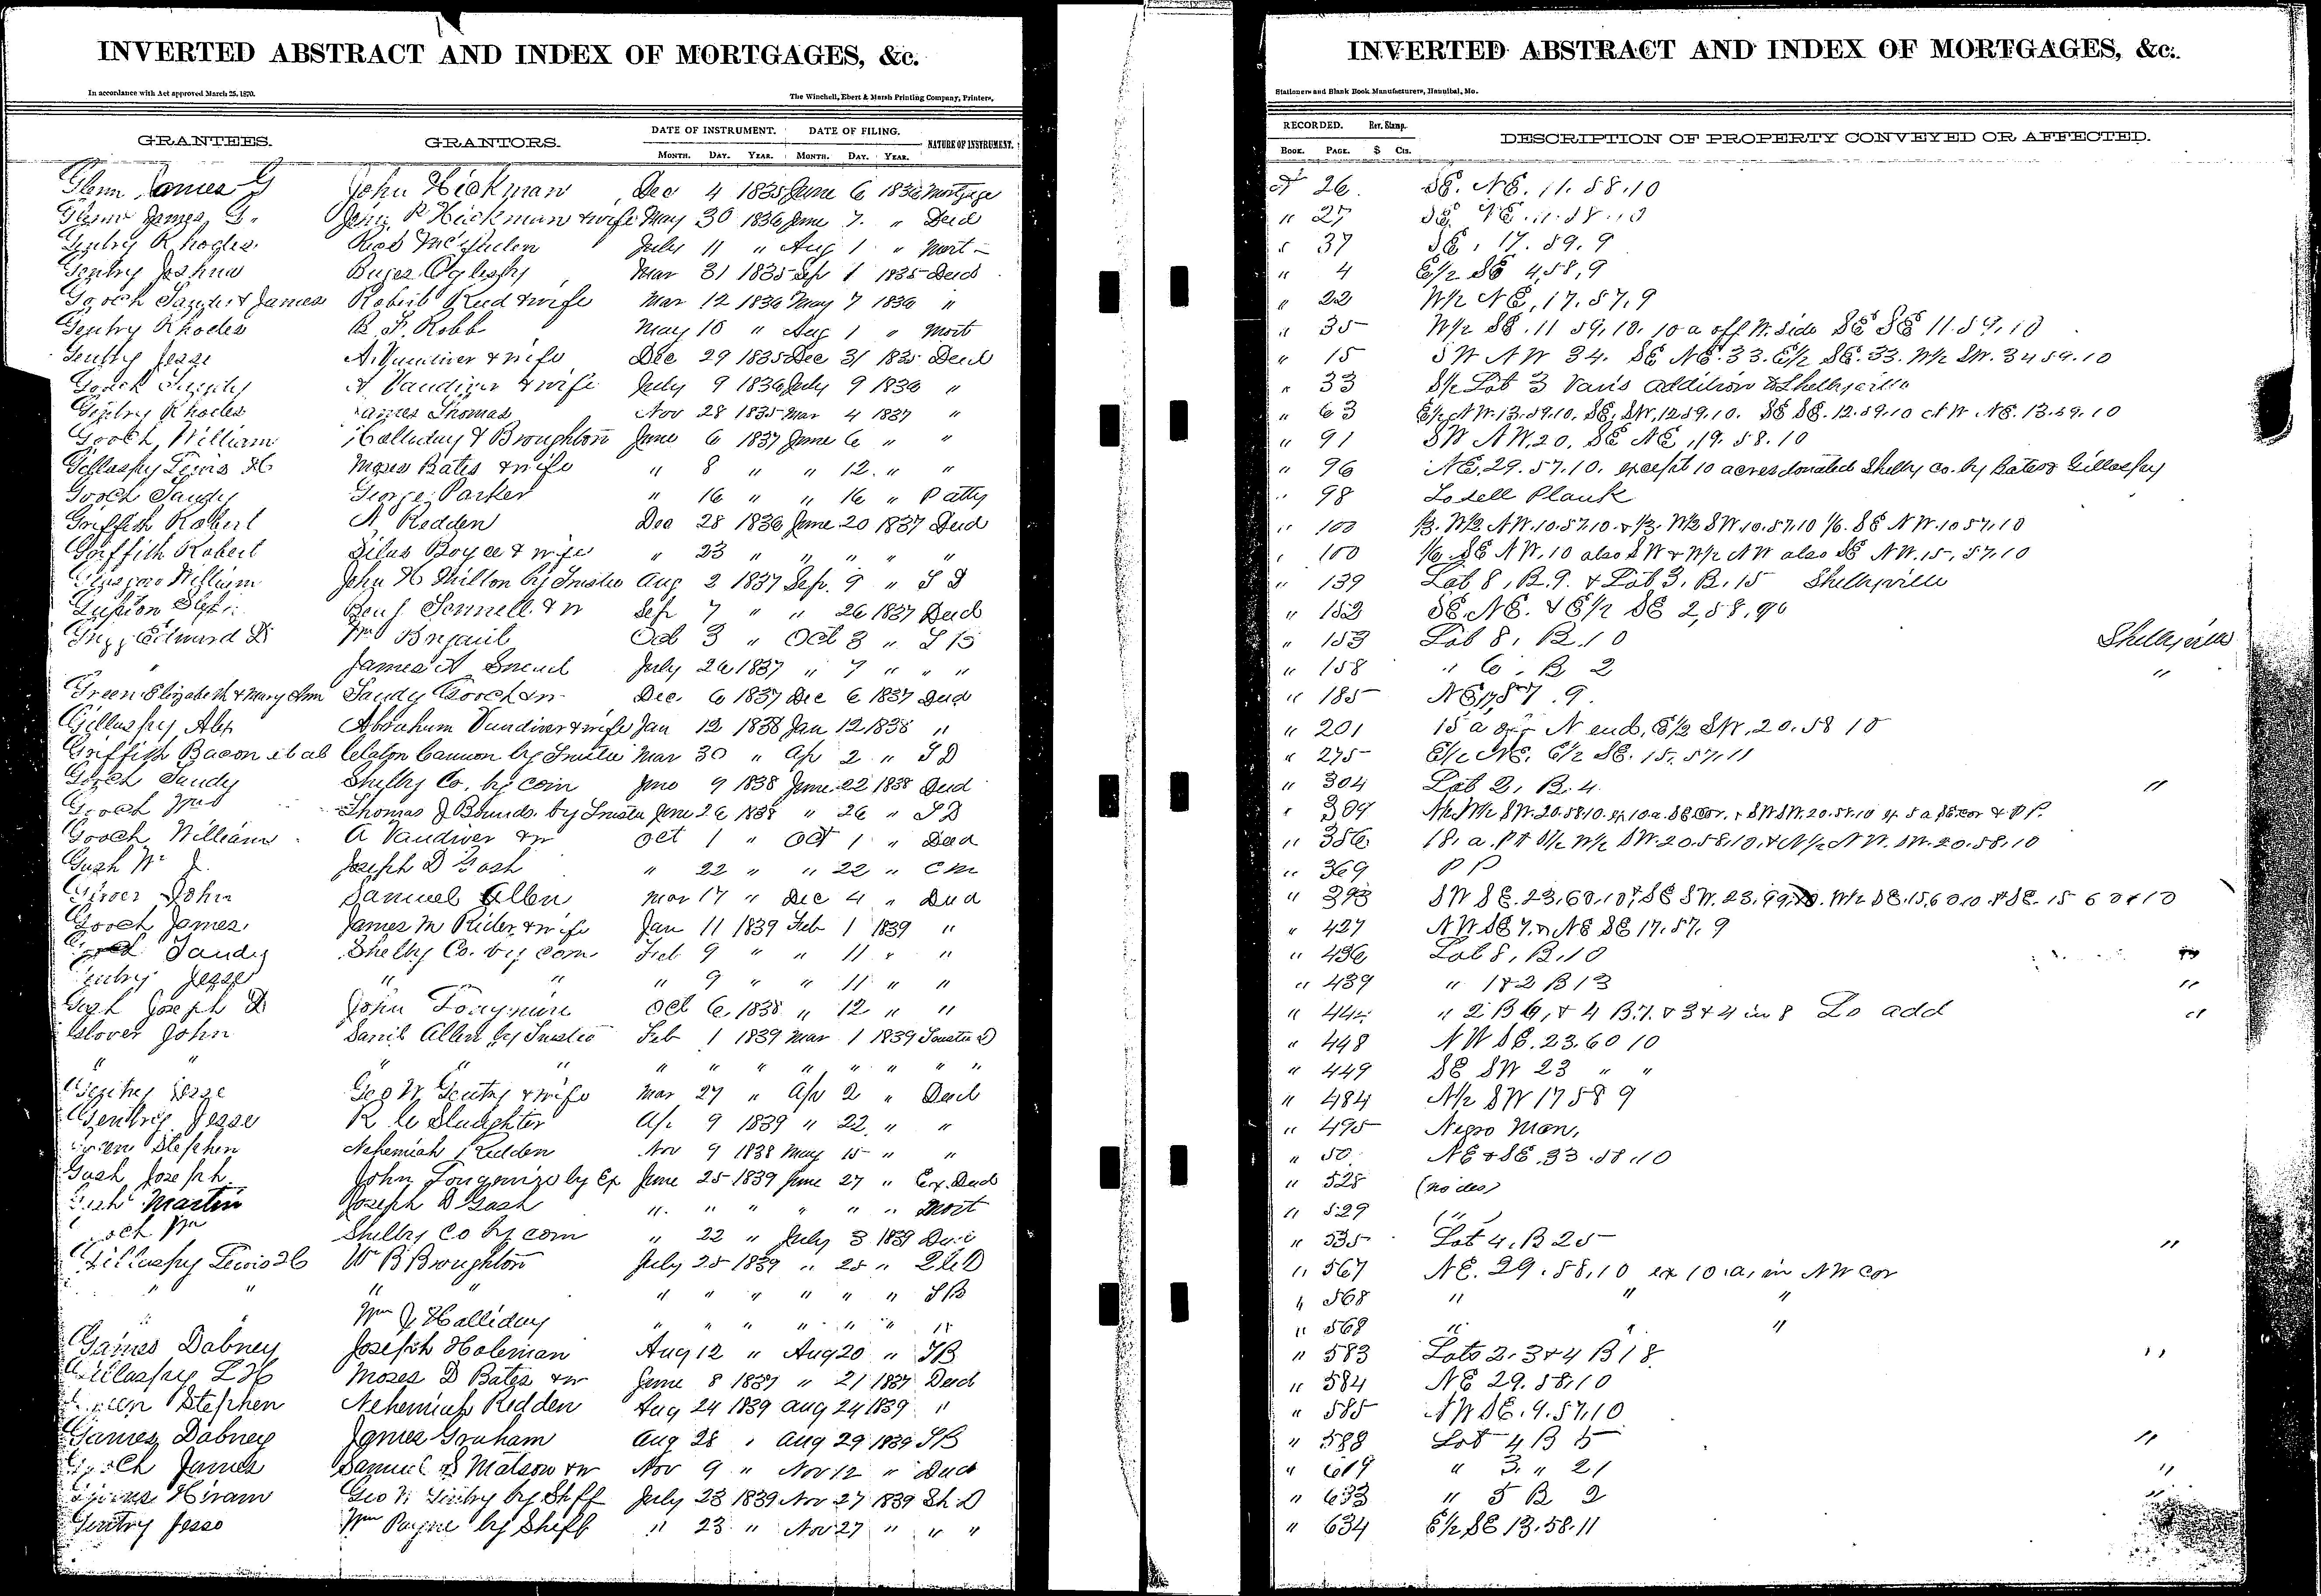 INVERTED ABSTRACT AND INDEX OF MORTGAGES, &c.
In accordance with Act approved March 25, 1870.
The Winchell, Ebert & Marsh Printing Company, Printers,
GRANTEES. GRANTORS. DATE OF INSTRUMENT. DATE OF FILING. NATURE OF INSTRUMENT.
MONTH. DAY. YEAR. MONTH. DAY. YEAR.
Glenn James G John Hickman Dec 4 1835 June 6 1836 Mortgage
Glenn James G. John P Hickman & wife May 30 1836 June 7. " Deed
Gentry Rhodes July 11 " Aug 1 " Mort
Gentry Joshua Oglesby Mar 31 1835 Sep 1 1835 Deed
Gooch James Robert Reed & wife Mar 12 1836 May 7 1836 "
Gentry Rhodes B. F. Robb May 10 " Aug 1 " Mort
Gentry Jesse A. Vandiver & wife Dec 29 1835 Dec 31 1835 Deed
Gooch A Vandiver & wife July 9 1836 July 9 1836 "
Gentry Rhodes James Thomas Nov 28 1835 Mar 4 1837 "
Gooch, William Halliday & Broughton June 6 1837 June 6 " "
Gillaspy Lewis H Moses Bates & wife " 8 " " 12. " "
Gooch Sandy George Parker " 16 " " 16 " P atty
Griffith Robert N Redden Dec 28 1836 June 20 1837 Deed
Griffith Robert Silas Boyce & wife " 23 " " " " "
William John H Milton by Trustee Aug 2 1837 Sep. 9 " T D
Benj. & w Sep 7 " " 26 1837 Deed
Edward D Wm Oct 3 " Oct 3 " T B
" James A July 26 1837 " 7 " " "
Green Elizabeth & Mary Ann Sandy Gooch & w Dec. 6 1837 Dec 6 1837 Deed
Gillaspy, Alex Abraham Vandiver & wife Jan 12 1838 Jan 12 1838 "
Griffith Bacon et al Cannon by Trustee Mar 30 " Ap 2 " T D
Gooch Sandy Shelby Co. by com June 9 1838 June 22 1838 Deed
Gooch Wm Thomas J Bounds by Trustee June 26 1838 " 26 " T D
Gooch, William A Vandiver & w Oct 1 " Oct 1 " Deed
Gash Wm J. Joseph D Gash " 22 " " 22 " C M
Glover John Samuel Allen Mar 17 " Dec 4 " Deed
Gooch James James M Rider & wife Jan 11 1839 Feb 1 1839 "
Gooch Sandy Shelby Co. by com Feb 9 " " 11 " "
Gentry Jesse " " " 9 " " 11 " "
Gash Joseph D John Oct 6 1838 " 12 " "
Glover John Saml Allen by Trustee Feb 1 1839 Mar 1 1839 Trustee D
" " " " " " " " " " "
Gentry Jesse Geo W. Gentry & wife Mar 27 " Apr 2 " Deed
Gentry Jesse R C Slaughter Ap 9 1839 " 22 " "
Green Stephen Nehemiah Redden Nov 9 1838 May 15 " "
Gash Joseph John by Ex June 25 1839 June 27 " Ex. Deed
Gash Martin Joseph D Gash " " " " " " Mort
Gooch Wm Shelby Co by com " 22 " July 3 1839 Deed
Gillaspy Lewis H W B Broughton July 25 1839 " 25 " D
" " " " " " " " " T B
" " Wm J. Halliday " " " " " " "
Gaines Dabney Joseph Holeman Aug 12 " Aug 20 " T B
Gillaspy L H Moses D Bates & w June 8 1837 " 21 1837 Deed
Green Stephen Nehemiah Redden Aug 24 1839 Aug 24 1839 "
Gaines Dabney James Graham Aug 28 " Aug 29 1839 T B
Gooch James Samuel S Matson & w Nov 9 " Nov 12 " Deed
Hiram Geo W Gentry by Shff July 23 1839 Nov 27 1839 Sh D
Gentry Jesse Wm Payne by Shff " 23 " Nov 27 " " "
INVERTED ABSTRACT AND INDEX OF MORTGAGES, &c.
Stationers and Blank Book Manufacturers, Hannibal, Mo.
RECORDED. Rev. Stamp. DESCRIPTION OF PROPERTY CONVEYED OR AFFECTED.
BOOK. PAGE. $ Cts.
A 26 SE. NE. 11. 58.10
" 27 SE. NE. 11. 58.10
" 37 SE, 17. 59. 9
" 4 E1/2 SE 4,58,9
" 22 W1/2 NE, 17. 57. 9
" 35 W1/2 SE. 11 59,10. 10 a off W. side SE SE 11.59.10
" 15 SW NW 34. SE NE. 33. E1/2 SE. 33. W1/2 SW. 34 59.10
" 33 S1/2 Lot 3 Van's addition to Shelbyville
" 63 E1/2 NW. 13.59.10. SE. SW. 12 59.10. SE SE. 12.59.10 NW NE. 13.59.10
" 91 SW NW, 20, SE NE, 19. 58.10
" 96 NE. 29.57.10. except 10 acres donated Shelby co. by Bates & Gillaspy
" 98 To sell Plank
" 100 1/3. W1/2 NW. 10.57.10 & 1/3. W1/2 SW. 10.57.10 1/6. SE NW. 10 57.10
" 100 1/6 SE NW, 10 also SW & W1/2 NW also SE NW. 15, 57.10
" 139 Lot 8, B. 9. & Lot 3, B. 15 Shelbyville
" 152 SE. NE. & E1/2 SE 2,58,90
" 153 Lot 8, B. 10 Shelbyville
" 158 " 6. B 2 "
" 185 NE 17 57. 9.
" 201 15 a off N end, E1/2 SW, 20.58 10
" 275 E1/2 NE. E1/2 SE. 15. 57.11
" 304 Lot 2, B. 4. "
" 309 N1/2 W1/2 SW. 20.58.10. ex 10 a. SE cor. & SW SW. 20.58.10 ex 5 a SE cor & P P.
" 356 18. a. Pt S1/2 W1/2 SW. 20.58.10. & N1/2 NW. SW. 20.58.10
" 369 P P
" 393 SW SE. 23.60.10 & SE SW. 23. W1/2 SE. 15.60.10 15 60 10
" 427 NW SE NE SE 17. 57. 9
" 436 Lot 8, B. 10 "
" 439 " 1 & 2 B 13 "
" 444 " 2 B 6, & 4 B. 7. & 3 & 4 in 8 So add "
" 448 NW SE. 23.60 10
" 449 SE SW 23 " "
" 484 N1/2 SW 17 58 9
" 495 Negro Man.
" 50 NE & SE. 33.58.10
" 528 (no des)
" 529 ( " )
" 535 Lot 4. B 25 "
" 567 NE. 29.58.10 ex 10.a. in NW cor
" 568 " " "
" 569 " " "
" 583 Lots 2. 3 & 4 B 18. "
" 584 NE 29. 58.10
" 585 NW SE. 9. 57.10
" 588 Lot 4 B 5 "
" 619 " 3. " 21 "
" 633 " 5 B 2 "
" 634 E1/2 SE 13.58.11